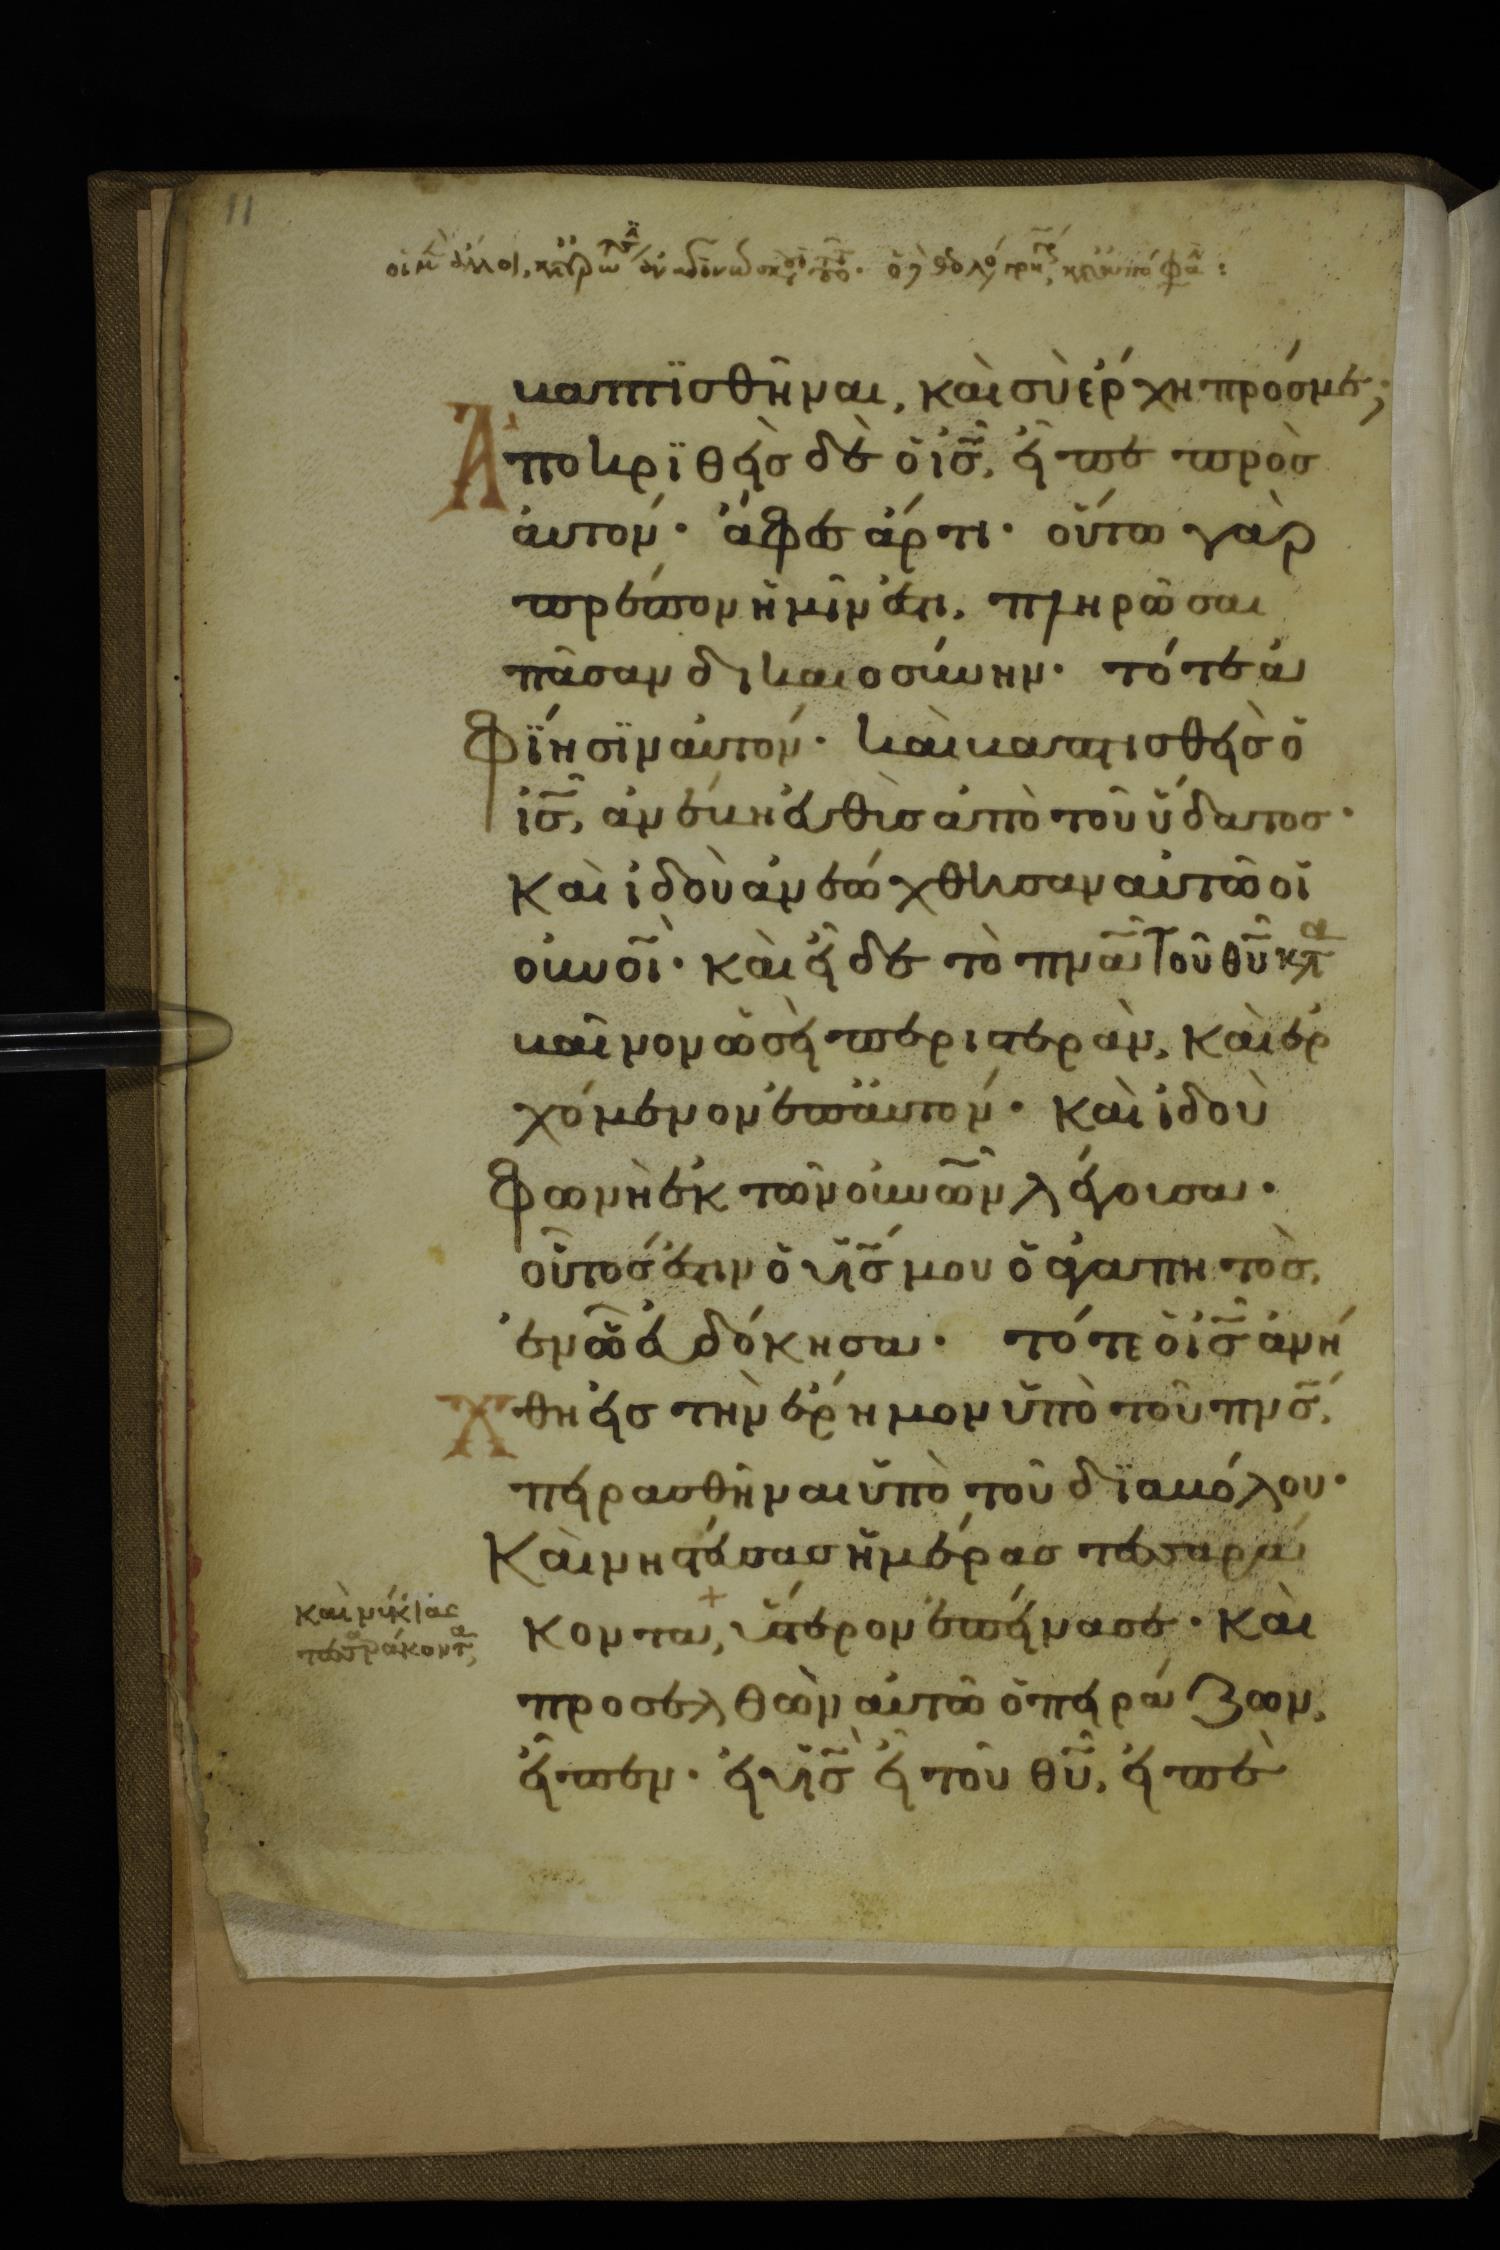 βαπτϊσθῆναι, καὶ σὺ ἔρχη πρός με;
Ἀποκρϊθεὶς δὲ ὁ ἰς̃, εἶπε πρὸς
αὐτόν· ἄφες ἄρτι· οὕτω γὰρ
πρέπον ἡμῖν ἐστι, πληρῶσαι
πᾶσαν δικαιοσύνην· τότε ἀ
φΐησϊν αὐτόν· καὶ βαπτισθεὶς ὁ
ἰς̃, ἀνέβη εὐθὺς ἀπὸ τοῦ ὕδατος·
Καὶ ἰδοὺ ἀνεώχθησαν αὐτῶ οἱ
οὐνοι̃· καὶ εἶδε τὸ πνα̃ τοῦ θυ̃ κατα
βαῖνον ὡσεὶ περιστερὰν, καὶ ἐρ
χόμενον ἐπ' αὐτόν· καὶ ἰδοὺ
φωνὴ ἐκ τῶν οὐνω̃ν λέγουσα·
οὗτός ἐστιν ὁ υἱς̃ μου ὁ ἀγαπητὸς,
ἐν ὧ εὐδόκησα· τότε ὁ ἰς̃ ἀνή
χθη εἰς τὴν ἔρημον ὑπὸ τοῦ πνς̃,
πειρασθῆναι ὑπὸ τοῦ δϊαβόλου·
Καὶ νηστεύσας ἡμέρας τεσσαρά
κοντα, ὕστερον ἐπείνασε· καὶ
καὶ νύκτας
τεσσαράκοντα,
προσελθὼν αὐτῶ ὁ πειράζων,
εἶπεν· εἰ υἱς̃ εἶ τοῦ θυ̃, εἰπὲ